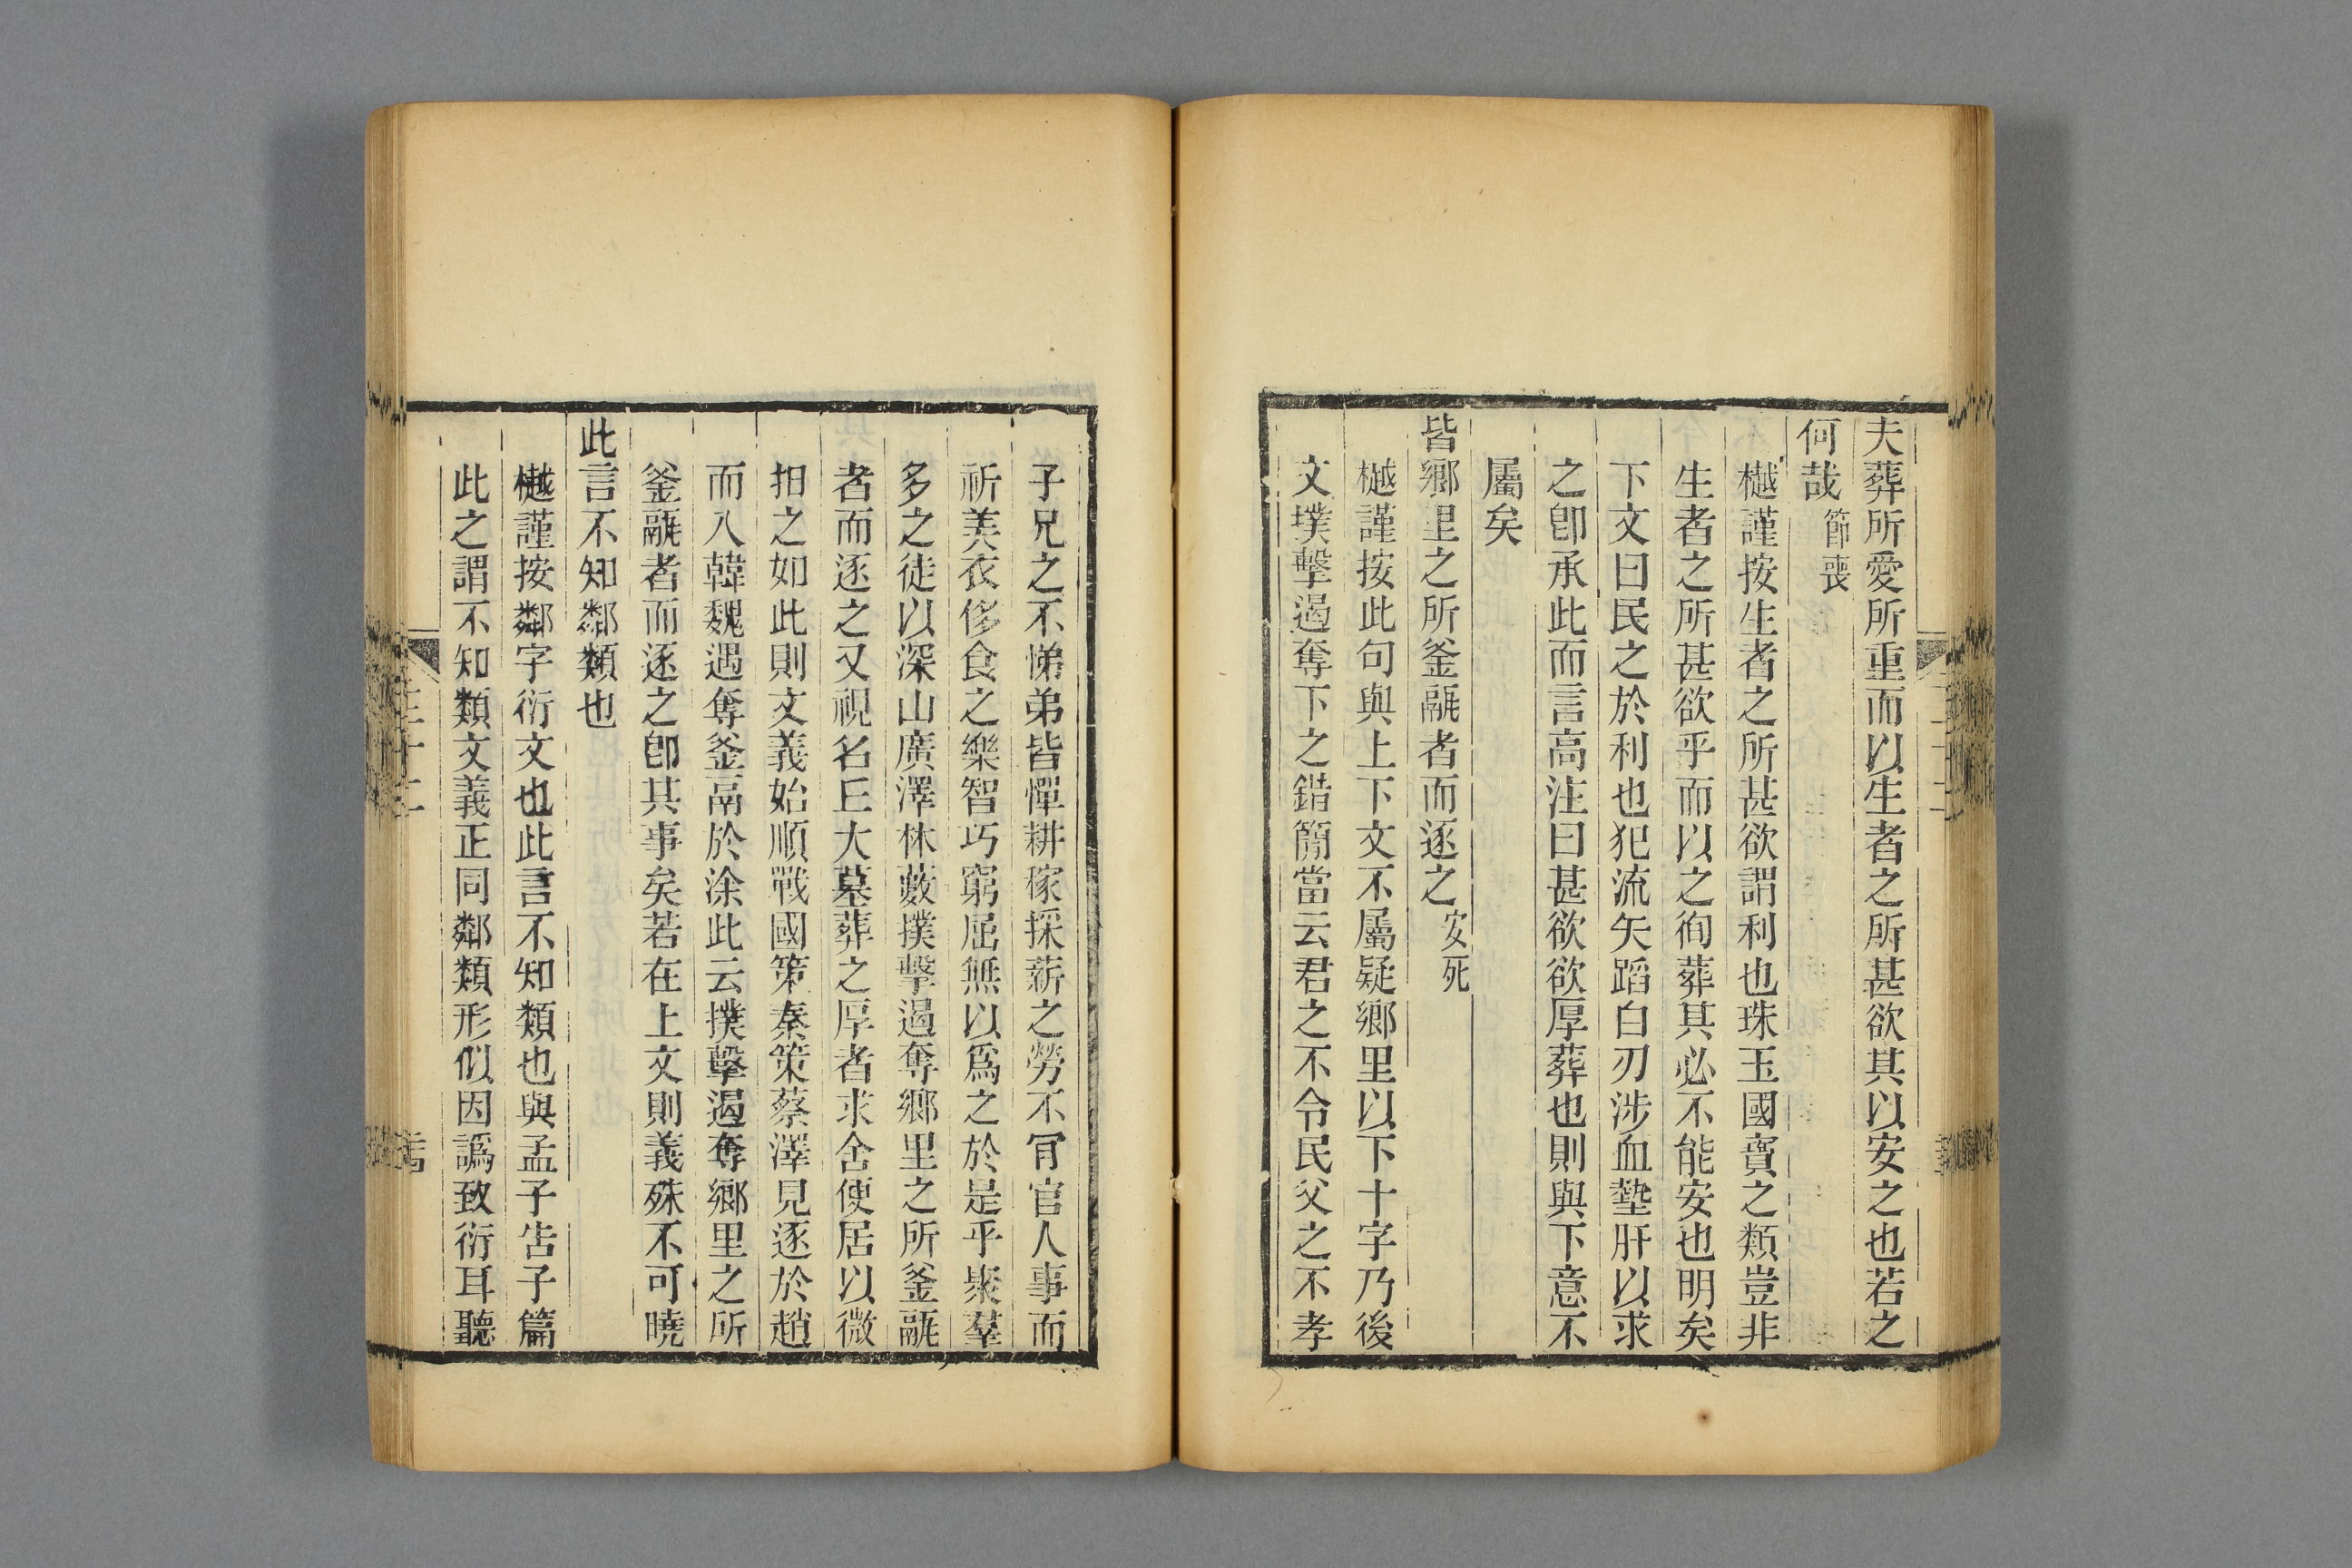 夫葬所愛所重而以生者之所甚欲其以安之也若之
何哉節喪
樾謹按生者之所甚欲謂利也珠玉國寶之類豈非
生者之所甚欲乎而以之徇葬其必不能安也明矣
下文曰民之於利也犯流矢蹈白刃涉血盩肝以求
之卽承此而言高注曰甚欲欲厚葬也則與下意不
屬矣
皆鄉里之所釜䰛者而逐之安死
樾謹按此句與上下文不屬疑鄉里以下十字乃後
文撲擊遏奪下之錯簡當云君之不令民父之不孝
子兄之不悌弟皆憚耕稼採薪之勞不肯官人事而
祈美衣侈食之樂智巧窮屈無以爲之於是乎聚羣
多之徒以深山廣澤林藪撲擊遏奪鄉里之所釜䰛
者而逐之又視名丘大墓葬之厚者求舍便居以微
抇之如此則文義始順戰國策秦策蔡澤見逐於趙
而入韓魏遇奪釜鬲於涂此云撲擊遏奪鄉里之所
釜䰛者而逐之卽其事矣若在上文則義殊不可曉
此言不知鄰類也
樾謹按鄰字衍文也此言不知類也與孟子告子篇
此之謂不知類文義正同鄰類形似因譌致衍耳聽